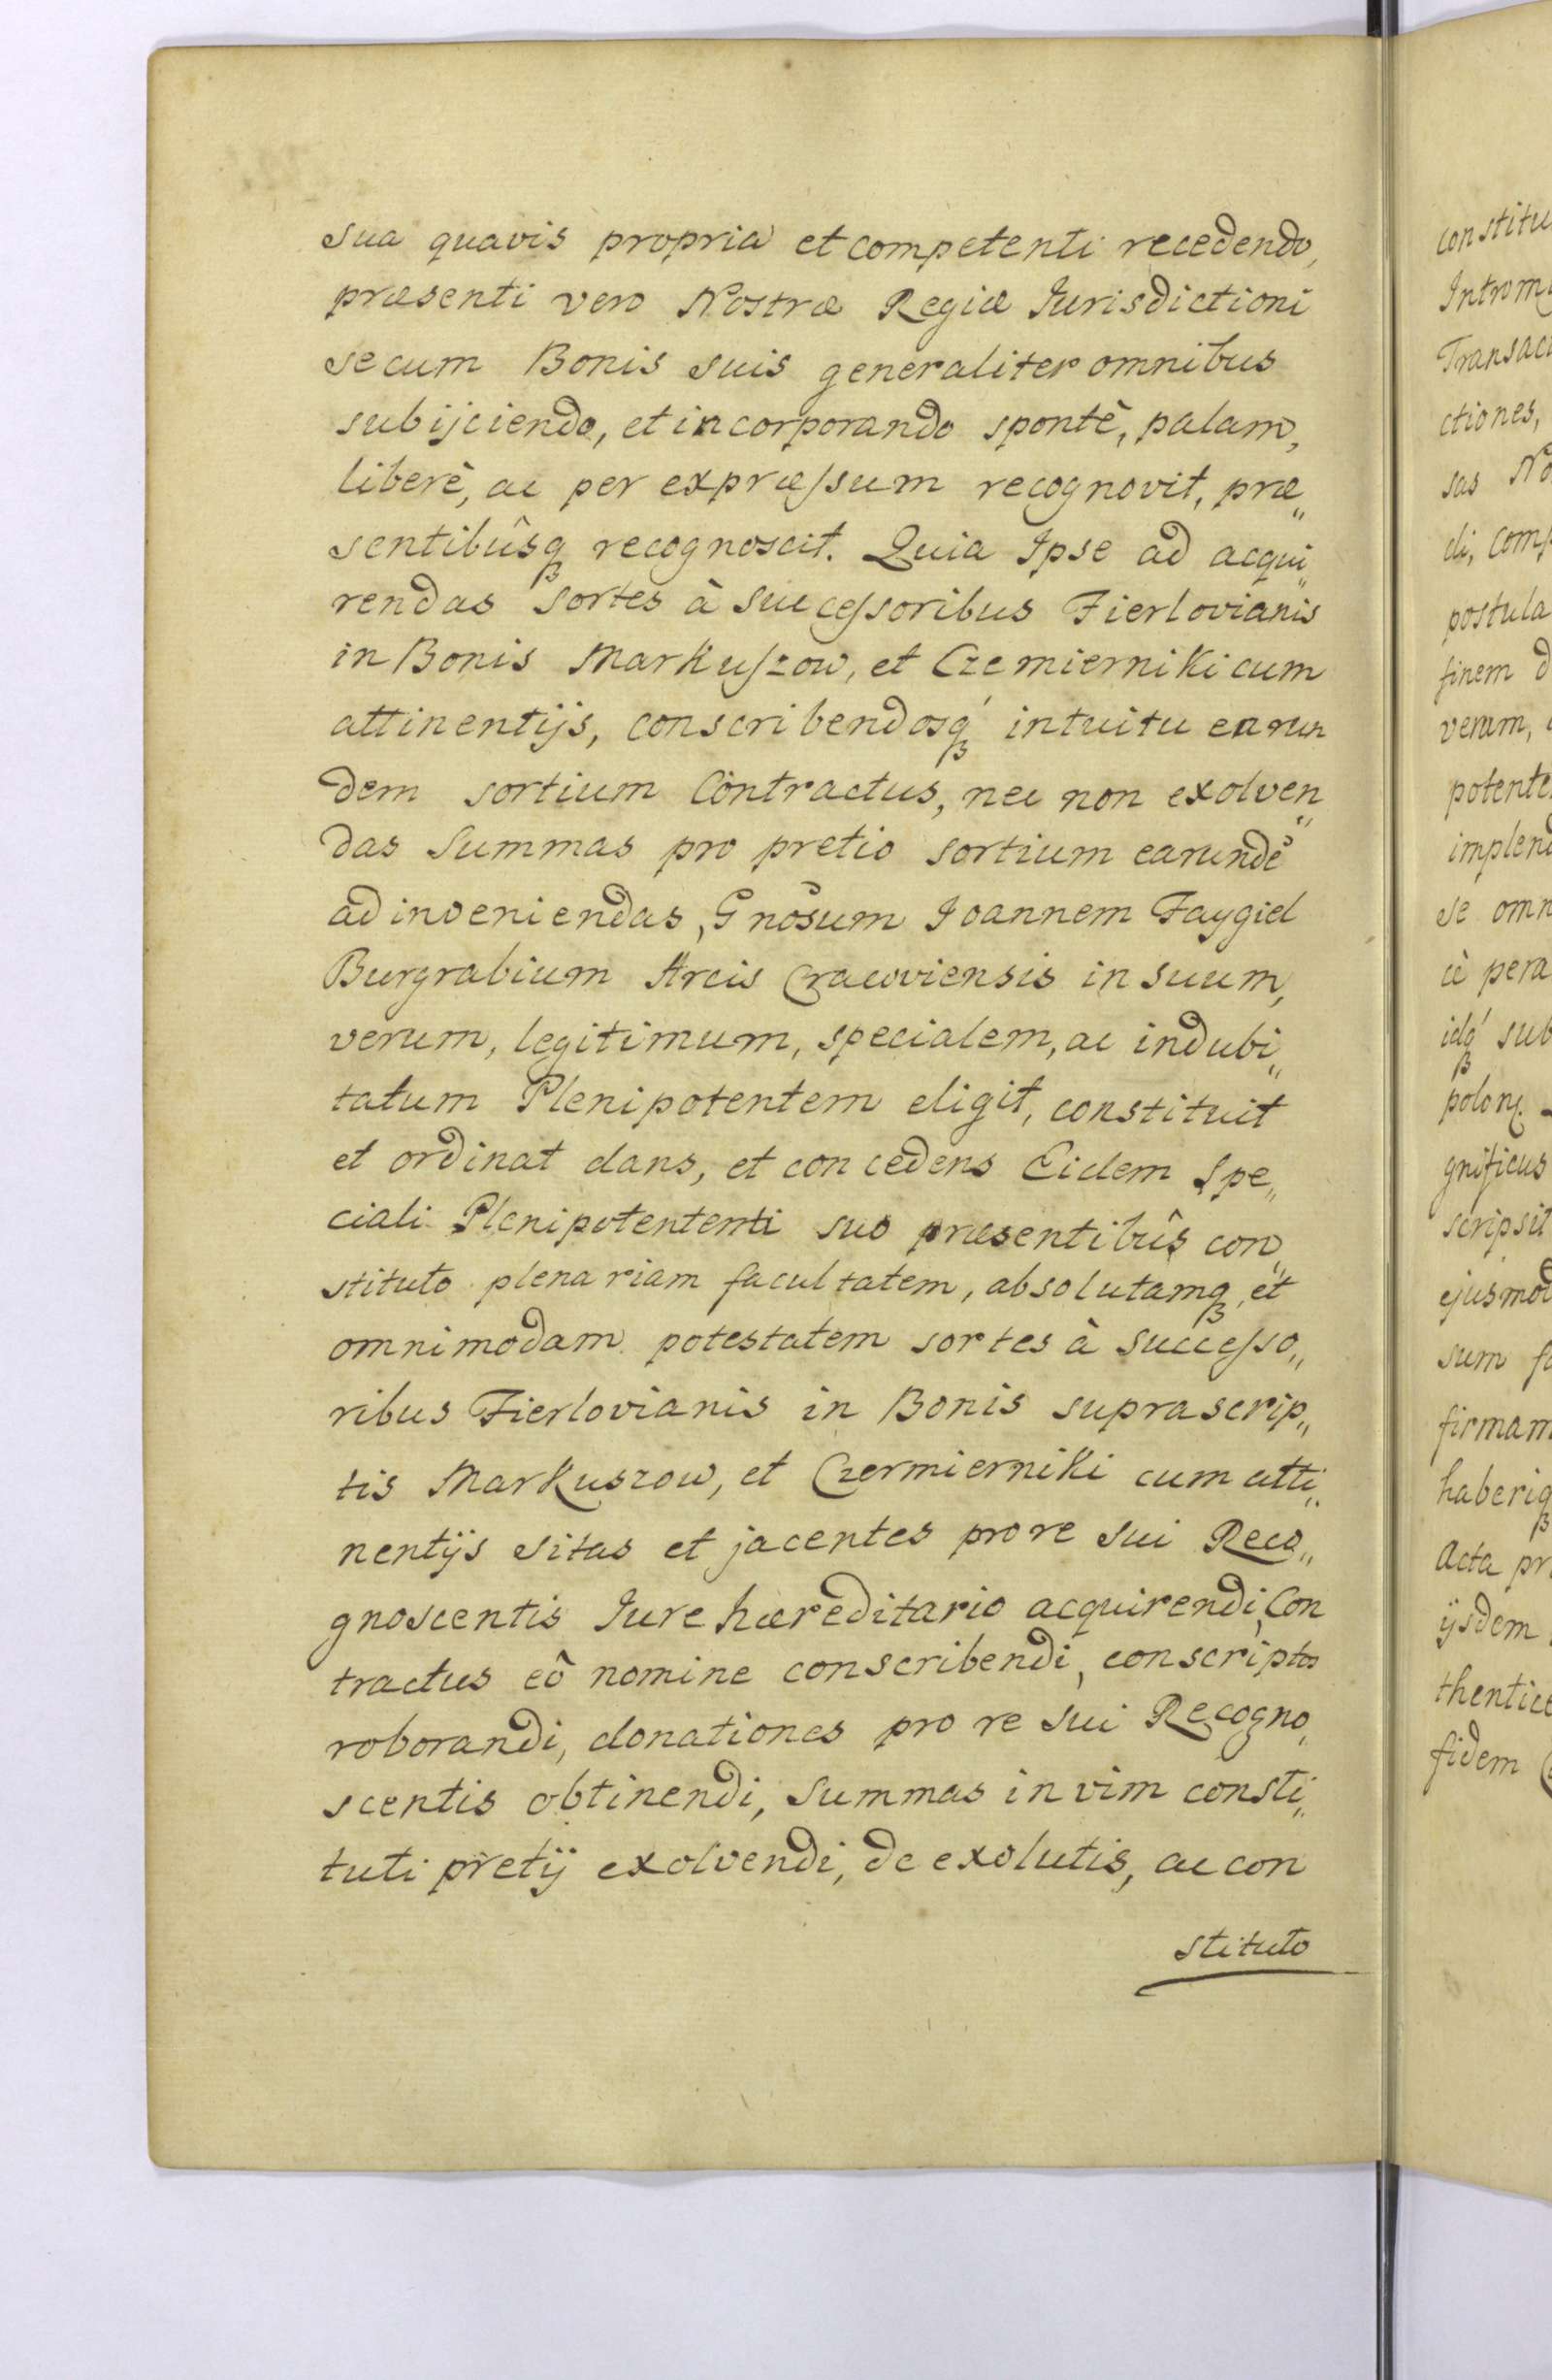 sua quavis propria et competenti recedendo,
præsenti vero Nostræ Regiæ Jurisdictioni
se cum Bonis suis generaliter omnibus
subijciendo, et incorporando spontè, palam,
liberè, ac per expræssum recognovit, præ„
sentibûsq₃ recognoscit. Quia Ipse ad acqui„
rendas sortes à Successoribus Fierlovianis
in Bonis Markuszow, et Czemierniki cum
attinentijs, conscribendosq́₃ intuitu earun
dem sortium Contractus, nec non exolven„
das Summas pro pretio sortium earundē
ad inveniendas, Gnōsum Joannem Faygiel
Burgrabium Arcis Cracoviensis in suum,
verum, legitimum, specialem, ac indubi„
tatum Plenipotentem eligit, constituit
et ordinat dans, et concedens Eidem Spe„
ciali Plenipotententi suo præsentibûs con„
stituto plenariam facultatem, absolutamq₃, et
omnimodam potestatem sortes à Successo„
ribus Fierlovianis in Bonis suprascrip„
tis Markuszow, et Czermierniki cum atti„
nentijs sitas et jacentes pro re sui Reco„
gnoscentis Jure hæreditario acquirendi, Con
tractus eô nomine conscribendi, conscriptos
roborandi, donationes pro re sui Recogno„
scentis obtinendi, Summas in vim consti„
tuti pretij exolvendi, de exolutis, ac con
stituto
constitu
Introm
Transac
ctiones,
sas No
di, comp
postula
finem d
veram,
potente
implend
se omn
cè pera
idq́₃ sub
polon.
gnificus
scripsit
ejusmod
sum f
firmam
haberiq₃
Acta pr
ijsdem
thentice
fidem